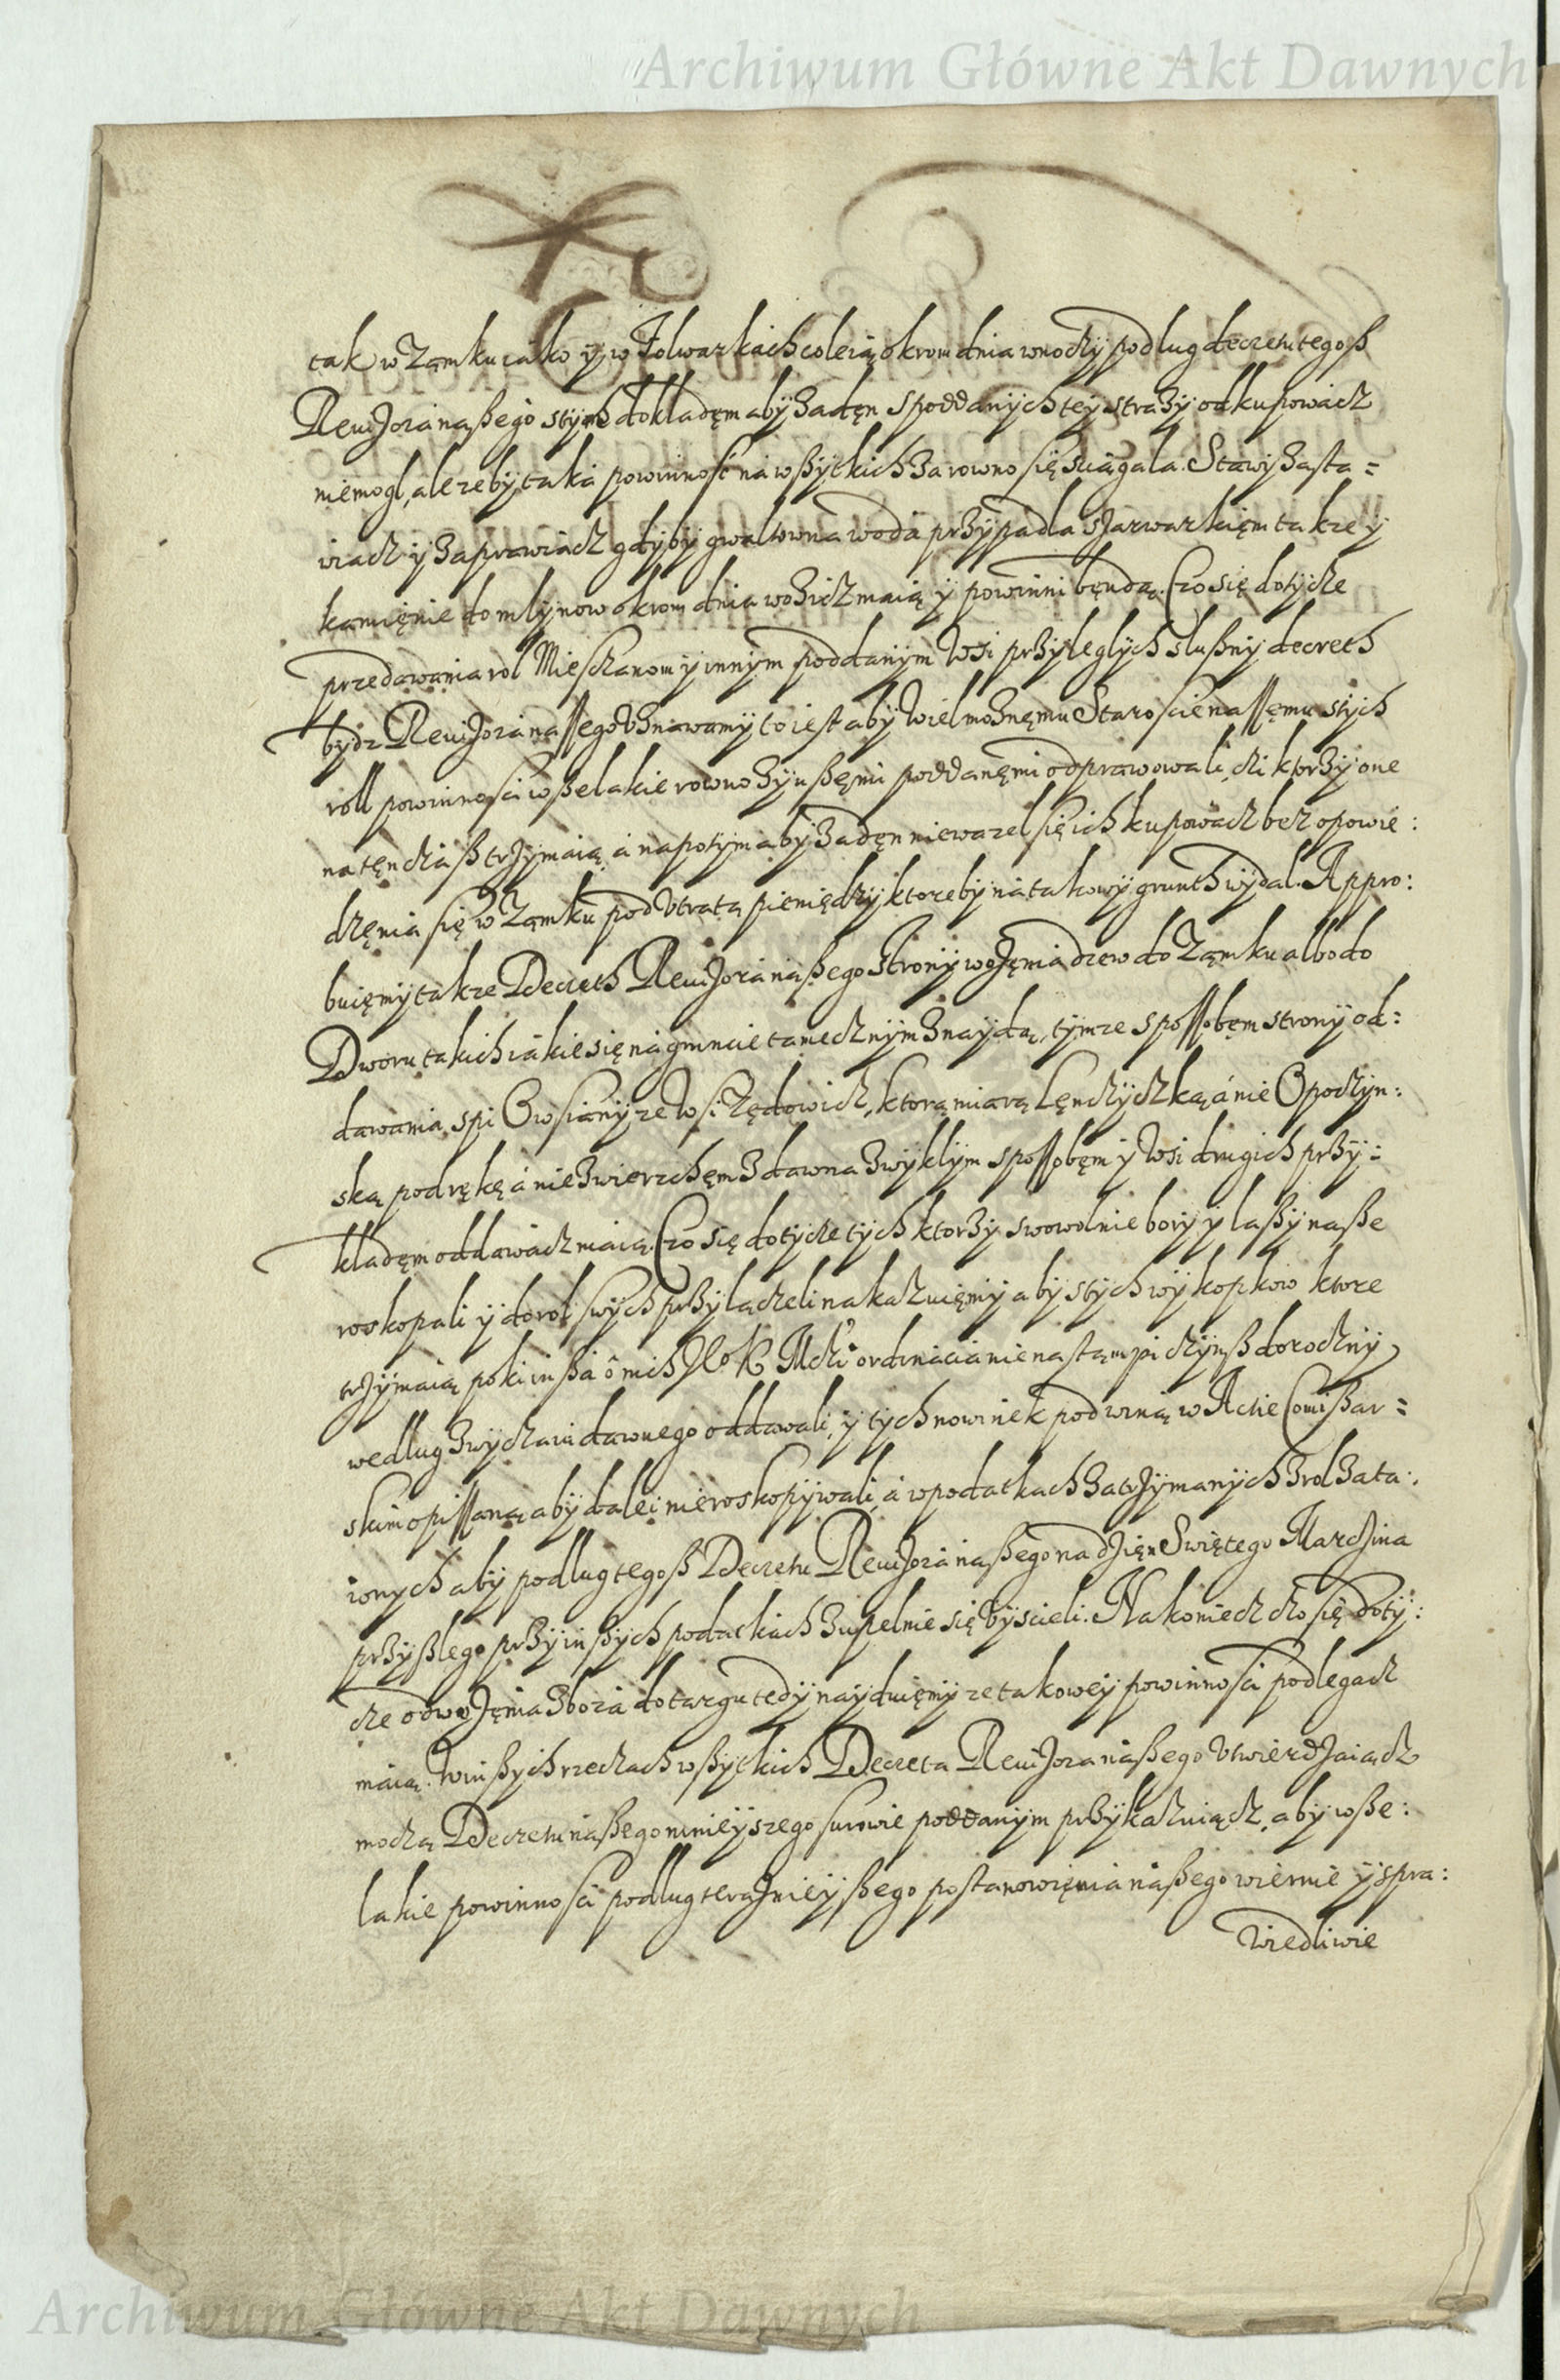 Archiwum Główne Akt Dawnych
tak w Zamku iako y w Folwarkach coleią okrom dnia w noczy podlug decretu tegoß
Reuisora naßego stym dokladęm aby żadęn s poddanych tey strazy odkupowacz
niemogl, ale zeby taka powinnosć na wßytkich zarowno się sciągala. Stawy zasta=
wiacz y zaprawiacz gdyby gwaltowna woda przypadla s szarwarkięm takze y
kamięnie do mlynow okrom dnia wozicz maią y powinni bęndą. Czo się dotycze
przedawania rol Miesczanom y innym poddanym Wsi przyleglych slußny decreth
bydz Reuisora nassego Vznawamy to iest aby Wielmoznęmu Staroscie nassęmu s tych
roll powinnosci wßelakie rowno z ynßęmi poddanęmi odprawowali, czi ktorzy one
na tęn czaß trzymaią, a napotym aby żadęn niewazel się ich kupowacz bez opowie:
dzęnia się w Zamku pod Vtratą pieniędzy ktoreby na takowy grunth wydal. Appro:
buięmy takze Decreth Reuisora naßego strony wozęnia drew do Zamku albo do
Dworu takich iakie się na gruncie tamecznym znaydą, tymze spossobęm strony od:
dawania spi Owsiany ze Wsi Zędowicz, ktorą miarą Lęnczyczką a nie Opoczyn:
ską pod rękę a nie z wierzchęm z dawna zwyklym spossobęm y Wsi drugich przy:
kladęm oddawacz maią. Czo się dotycze tych ktorzy swowolnie bory y lasy naße
roskopali y do rol swych przylączeli nakazuięmy aby s tych wykopkow ktore
trzymaią poki inßa o nich JKo K Mczi ordinacia nie nastąmpi czynß doroczny
wedlug zwyczaiu dawnego oddawali, y tych nowinek pod winą w Akcie Comißar=
skim opissaną aby daley nieroskopywali, a w podatkach zatrzymanych z rol zata:
ionych aby podlug tegoß Decretu Reuisora naßego na dzięn Swiętego Marczina
przyßlego przy inßych podatkach zupelnie się vyscieli. Na koniecz czo się doty:
cze odwozęnia zboza do targu tedy nayduięmy ze takowey powinnosci podlegacz
maią. W inßych rzeczach wßytkich Decreta Reuisora naßego Vtwierdzaiącz
moczą Decretu naßego ninieyszego surowie poddanym przykazuiącz, aby wße:
lakie powinnosci podlug teraznieyßego postanowięnia naßego wiernie y spra:
wiedliwie
Archiwum Główne Akt Dawnych